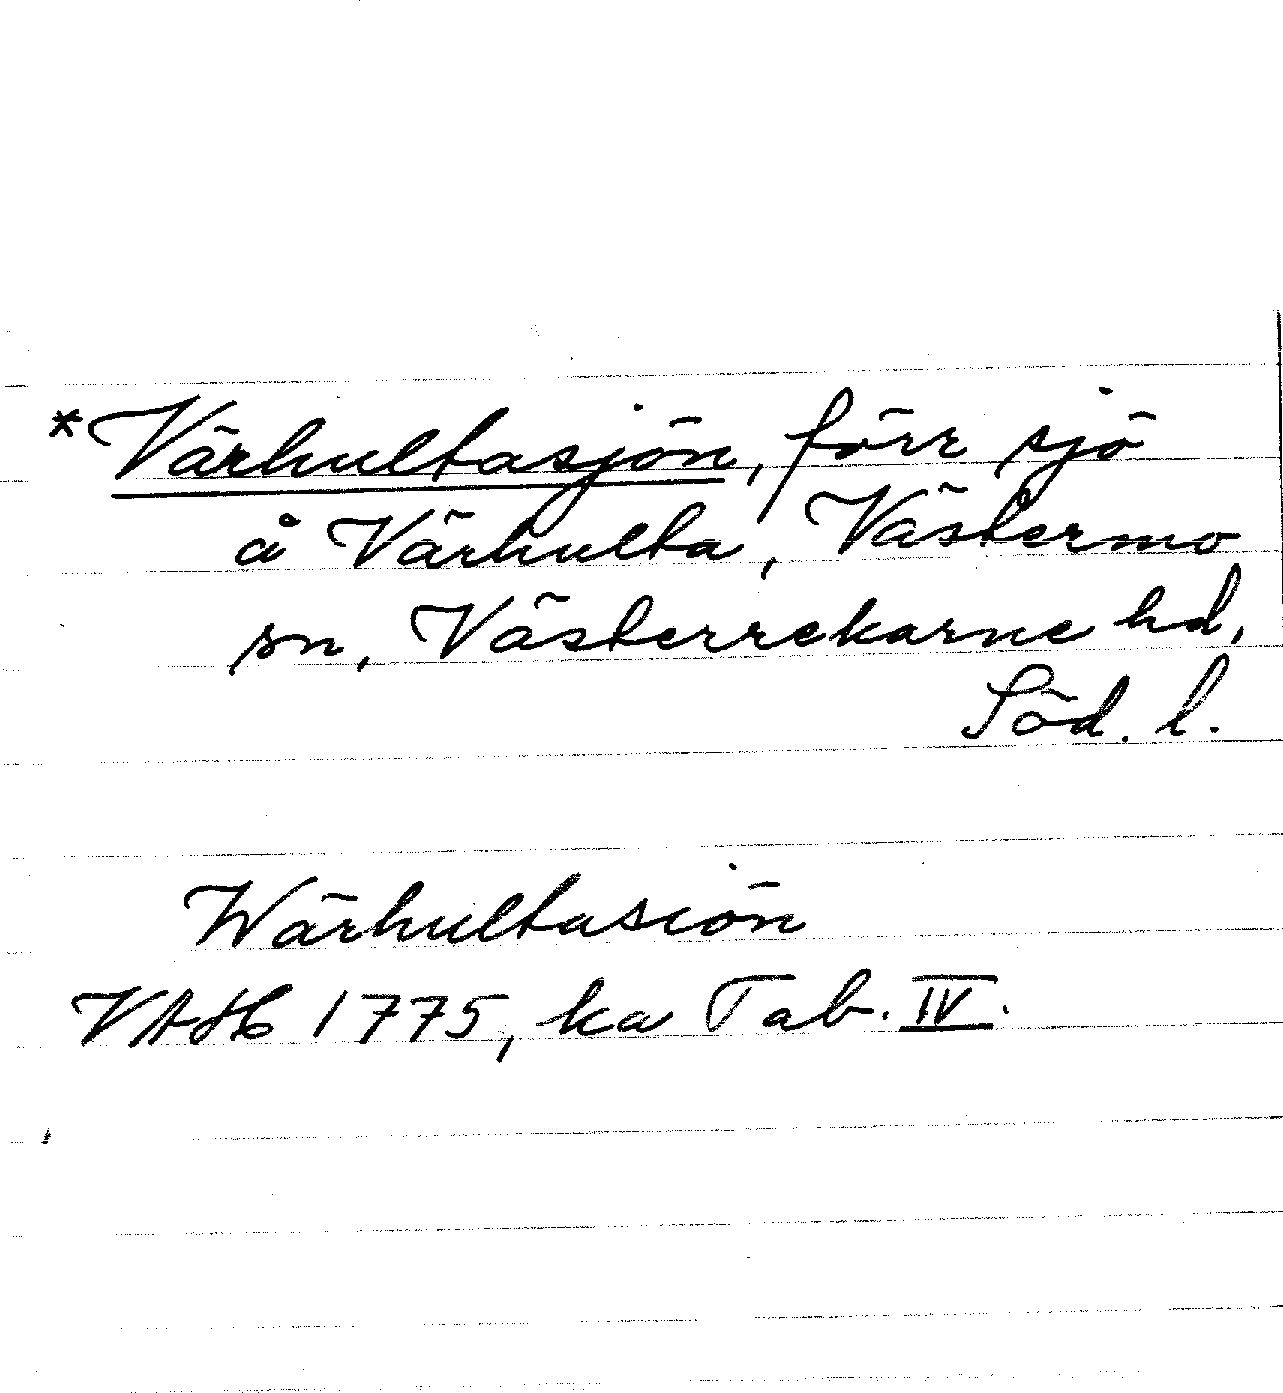 *Värhultasjön, förr sjö
å Värhulta, Västermo
sn, Västerrekarne hd,
Söd. l.
Wärhultasiön
VAH 1775, ka Tab. IV.